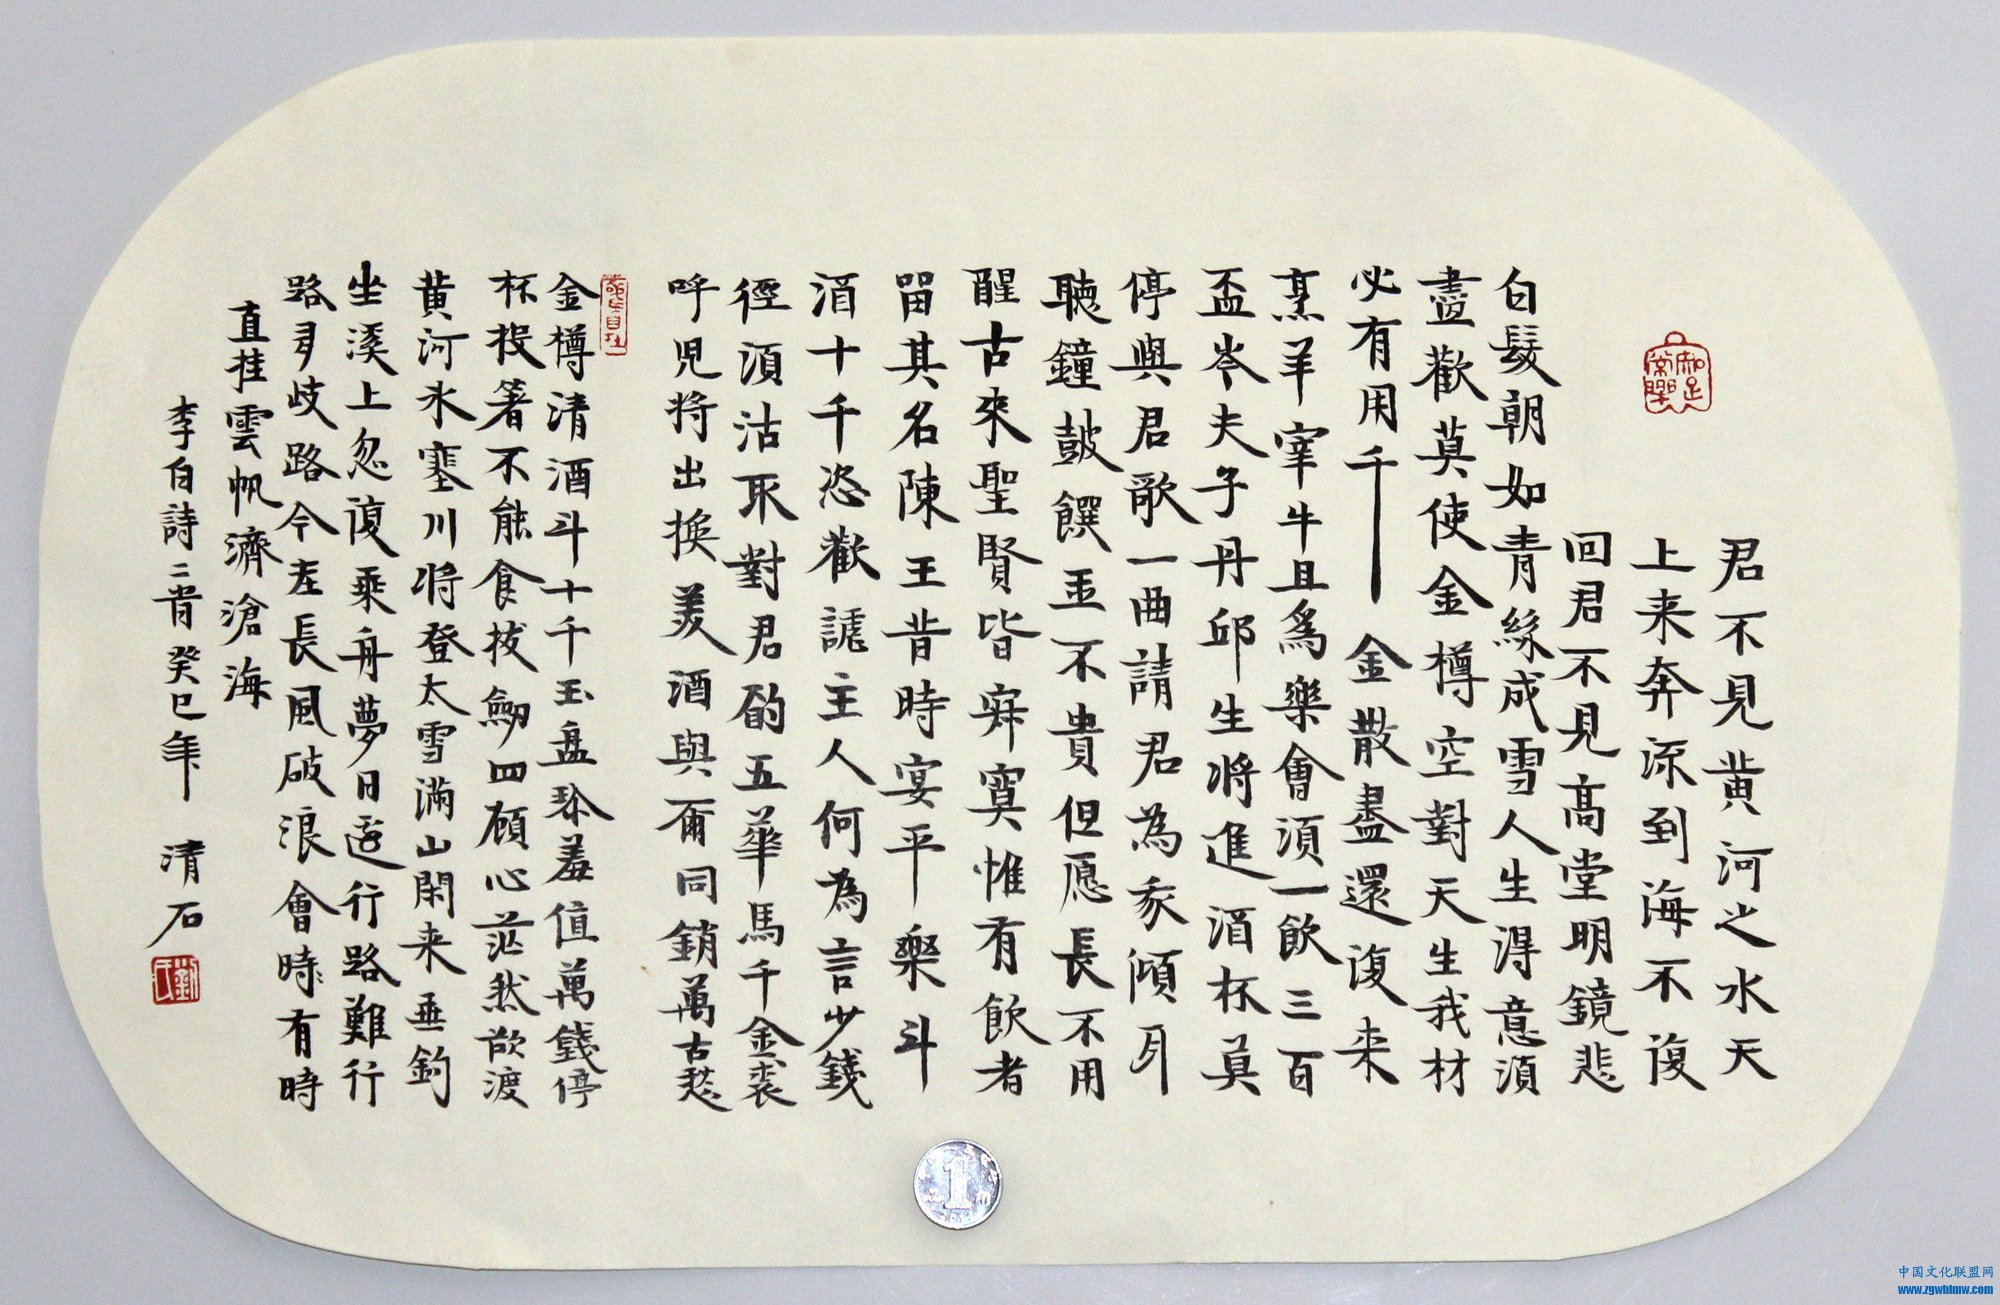 君不見黄河之水天
上来奔流到海不復
回君不見高堂明鏡悲
白髮朝如青絲成雪人生得意須
盡歡莫使金樽空對天生我材
必有用千金散盡還復来
烹羊宰牛且為樂會須一飲三百
盃岑夫子丹邱生将進酒杯莫
停與君歌一曲請君為我傾耳
聽鐘鼓饌玉不貴但愿長不用
醒古来聖賢皆寂寞惟有飲者
留其名陳王昔時宴平樂斗
酒十千恣歡謔主人何為言少錢
徑須沽取對君酌五華馬千金裘
呼児将出換美酒與爾同銷萬古愁
金樽清酒斗十千玉盘珍羞值萬錢停
杯投箸不能食拔劒四顧心茫然欲渡
黄河氷塞川将登太雪滿山閑来垂釣
坐溪上忽復乘舟夢日邊行路難行
路多歧路今在長風破浪會時有時
直挂雲帆濟滄海
李白詩二首癸巳年 清石
知足常樂
劉氏
1
中国文化联盟网
www.zgwhlmw.com